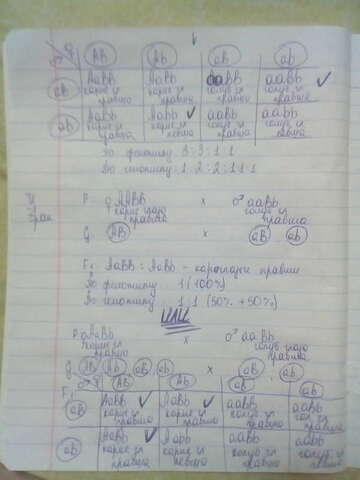 ♀ AB Ab aB ab
♂
aB AaBB AaBb aaBB aaBb ✓
карие гл карие гл голуб гл голуб гл
правша правша правша правша
ab AaBb Aabb ✓ aaBb aabb
карие гл карие гл голуб гл голуб гл
правша левша правша левша
По фенотипу 3:3:1:1
По генотипу: 1:2:2:1:1:1
P: ♀ AABB x ♂ aaBb
правша правша
G: AB x aB ab
F1: AaBB : AaBb - кареглазы правши
По фенотипу : 1 (100%)
По генотипу : 1:1 (50% + 50%)
ИЛИ
P: ♀ AaBb x ♂ aaBb
правша правша
G: AB Ab aB ab x aB ab
♂ ♀ AB Ab aB ab
F1
aB AaBB ✓ AaBb ✓ aaBB aaBb
карие гл карие гл голуб гл
правша правша правша правша
ab AaBb ✓ Aabb aaBb aabb
карие гл карие гл голуб гл голуб гл
правша левша правша левша